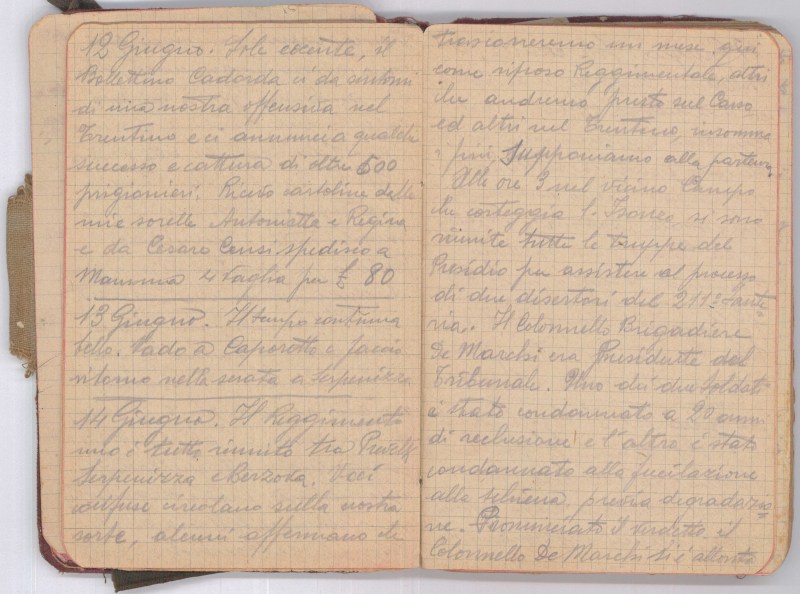 12 Giugno. Sole cocente, il
Bollettino Cadorda ci da sintomi
di una nostra offensiva nel
Trentino e ci annuncia qualche
successo e cattura di oltre 500
prigionieri. Ricevo cartoline dalle
mie sorelle Antonietta e Regina
e da Cesare Censi spedisco a
Mamma 4 Vaglia per £ 80
13 Giugno. Il tempo continua
bello. Vado a Caporetto e faccio
ritorno nella serata a Serpenizza
14 Giugno. Il Reggimento
mio è tutto riunito tra
Serpenizza e Berzona. Voci
confuse circolano sulla nostra
sorte, alcuni affermano che
trascorreremo un mese qui
come riposo Reggimentale, altri
che andremo presto sul Carso
ed altri nel Trentino, insomma
Supponiamo alla partenza.
Alle ore 3 nel vicino Campo
che costeggia l'Isonzo, si sono
riunite tutte le truppe del
Presidio per assistere al processo
di due disertori del 211º Fante
ria. Il Colonnello Brigadiere
De Marchi era Presidente del
Tribunale. Uno dei due soldati
è stato condannato a 20 anni
di reclusione e l'altro è stato
condannato alla fucilazione
alla schiena, previa degradazio
ne. Pronunciato il verdetto, il
Colonnello De Marchi si è